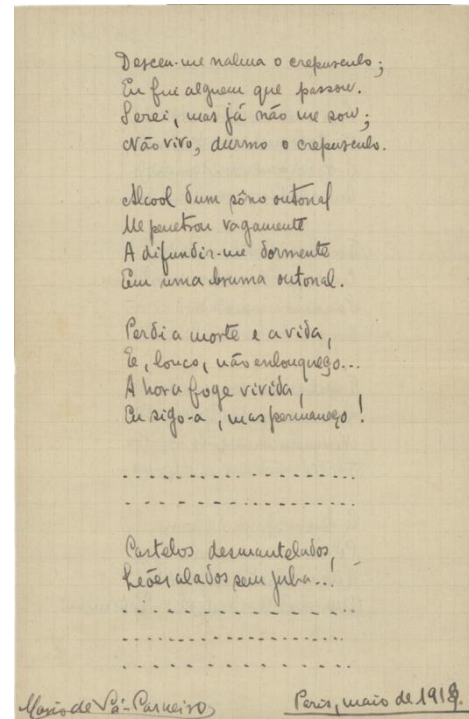 Desceu-me nalma o crepusculo;
Eu fui alguem que passou.
Serei, mas já não me sou;
Não vivo, durmo o crepusculo.
Alcool dum sôno outonal
Me penetrou vagamente
A difundir-me dormente
Em uma bruma outonal.
Perdi a morte e a vida,
E, louco, não enlouqueço...
A hora foge vivida,
Eu sigo-a, mas permaneço!
. . . . . . . . . . . . . . . . . .
. . . . . . . . . . . . . . . . . .
Castelos desmantelados,
Leões alados sem juba...
. . . . . . . . . . . . . . . . . .
. . . . . . . . . . . . . . . . . .
. . . . . . . . . . . . . . . . . .
Mario de Sá-Carneiro
Paris, maio de